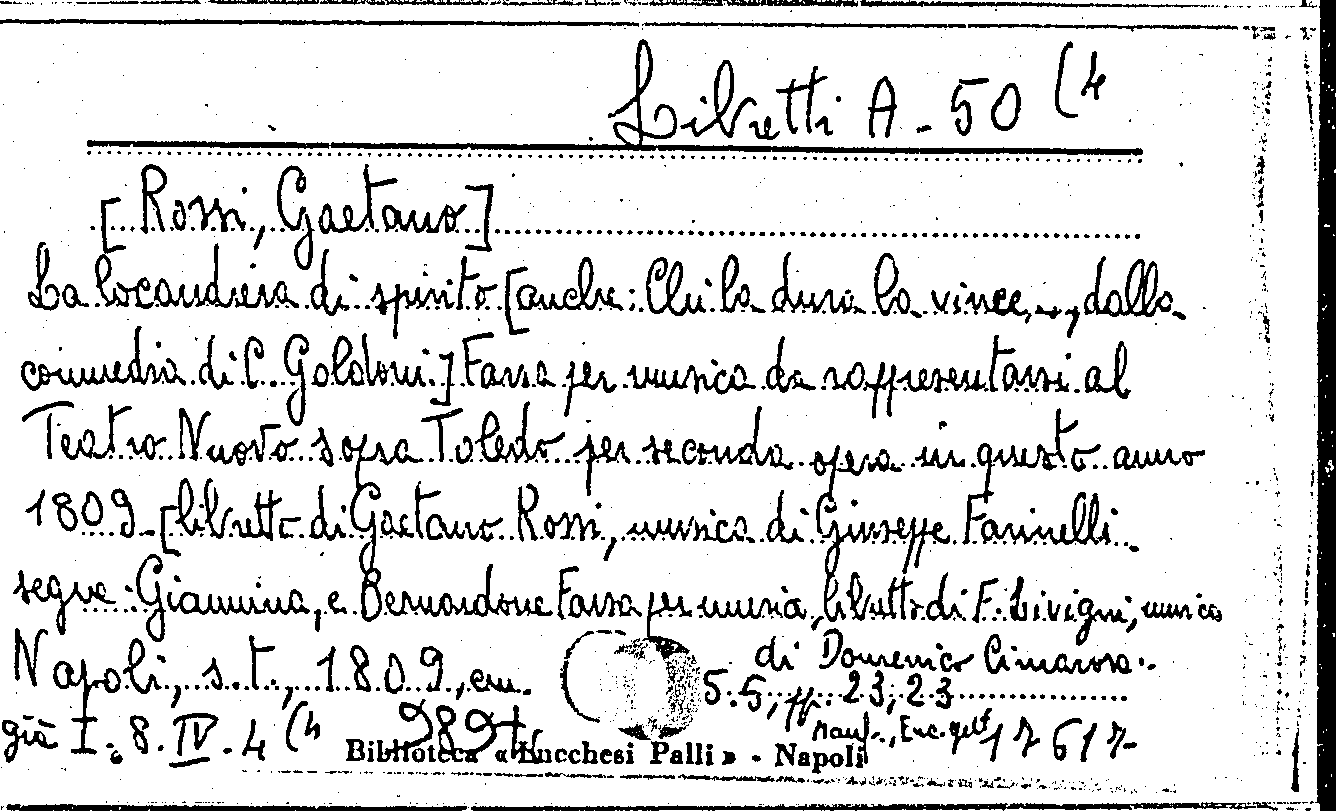 Libretti A - 50 (4
[Rossi, Gaetano]
La locandiera di spirito [anche: Chi la dura la vince..., dalla
commedia di C. Goldoni.] Farsa per musica da rappresentarsi al
Teatro Nuovo sopra Toledo per seconda opera in questo anno
1809 - [libretto di Gaetano Rossi, musica di Giuseppe Farinelli.
segue: Giannina, e Bernardone Farsa per musica, libretto di F. Livigni, musica
di Domenico Cimarosa.
Napoli, s.t., 1809, cm.
5.5, pp. 23,23
già I. 8. IV. 4 (4
17617
Biblioteca «Lucchesi Palli» - Napoli